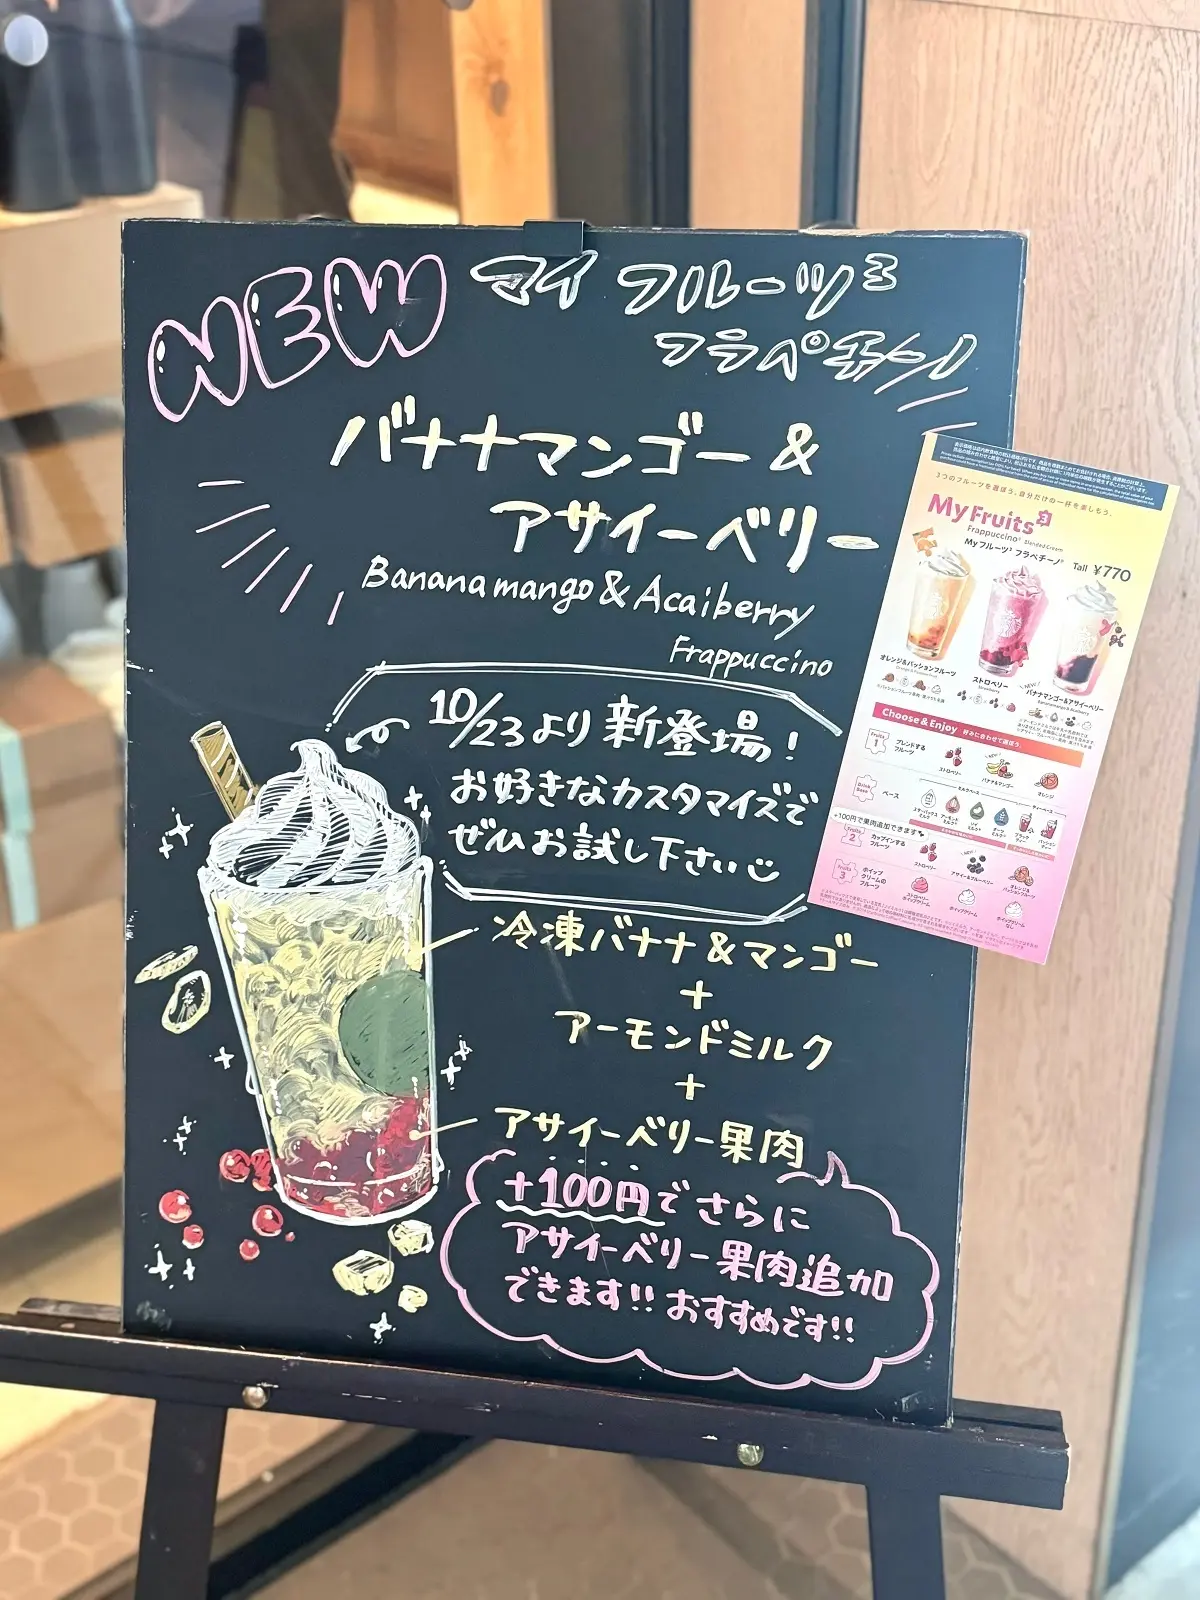 NEW マイ フルーツ³
フラペチーノ
バナナマンゴー &
アサイーベリー
Banana mango & Acaiberry
Frappuccino
10/23より 新登場!
お好きなカスタマイズで
ぜひお試し下さい
冷凍バナナ&マンゴー
+
アーモンドミルク
+
アサイーベリー果肉
+100円でさらに
アサイーベリー果肉追加
できます!! おすすめです!!
3つのフルーツを選ぼう。自分だけの一杯を楽しもう。
My Fruits3
Frappuccino® Blended Cream
Myフルーツ³ フラペチーノ® Tall ¥770
オレンジ&パッションフルーツ
ストロベリー
Strawberry
NEW!
バナナマンゴー&アサイーベリー
Bananamango & Acaiberry
Choose & Enjoy 好みに合わせて選ぼう。
Fruits 1
ブレンドする
フルーツ
ストロベリー
バナナ&マンゴー
オレンジ
Drink Base
ベース
+100円で果肉追加できます
Fruits 2
カップインする
フルーツ
ストロベリー
アサイー&ブルーベリー
オレンジ&
パッションフルーツ
Fruits 3
ホイップ
クリームの
フルーツ
ストロベリー
ホイップクリーム
ホイップクリーム
ホイップクリーム
なし